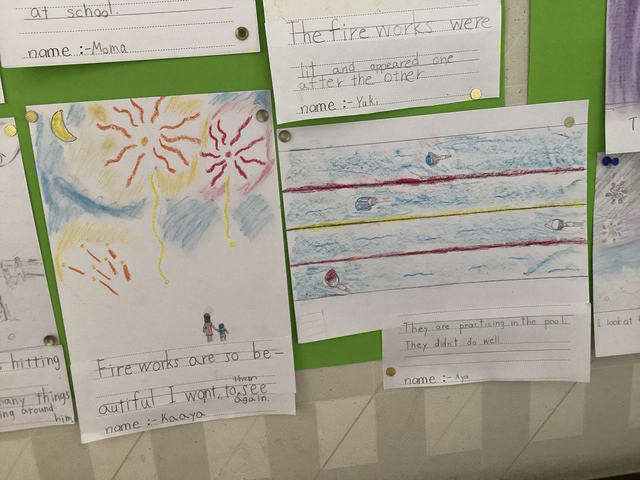 at school.
name :- Moma
The fire works were
lit and appeared one
after the other
name :- Yuki
Fire works are so be-
autiful I want to see them
again.
name :- Kaaya
They are practicing in the pool.
They didn't do well
name :- Aya
hitting
many things
around
him
T
I look at